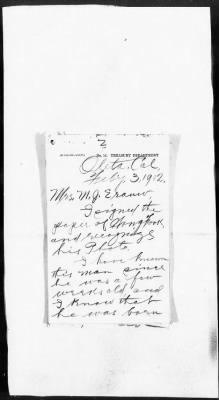 2
TREASURY DEPARTMENT
Oleta, Cal,
Feby. 3, 1912,
Mrs. M. J.
I signed the
paper of Hong
and recognize
his Photo.
I have known
this man since
he was a few
weeks old and
I know that
he was born